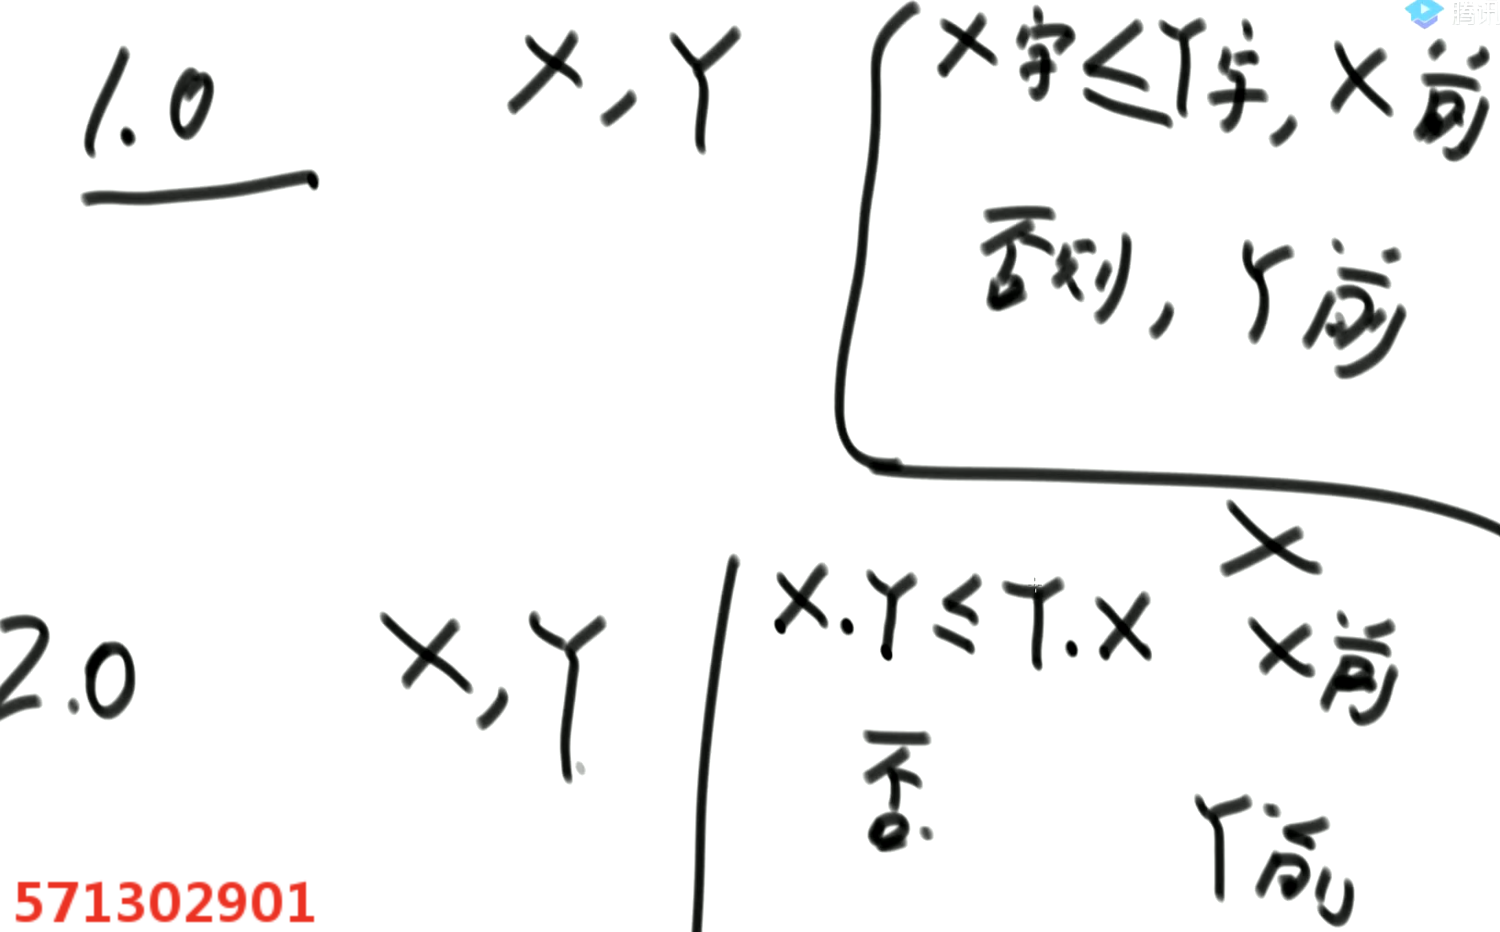 腾讯
1.0 X,Y X字≤Y字,X前
否则,Y前
X
2.0 X,Y X.Y≤Y.X X前
否. Y前
571302901